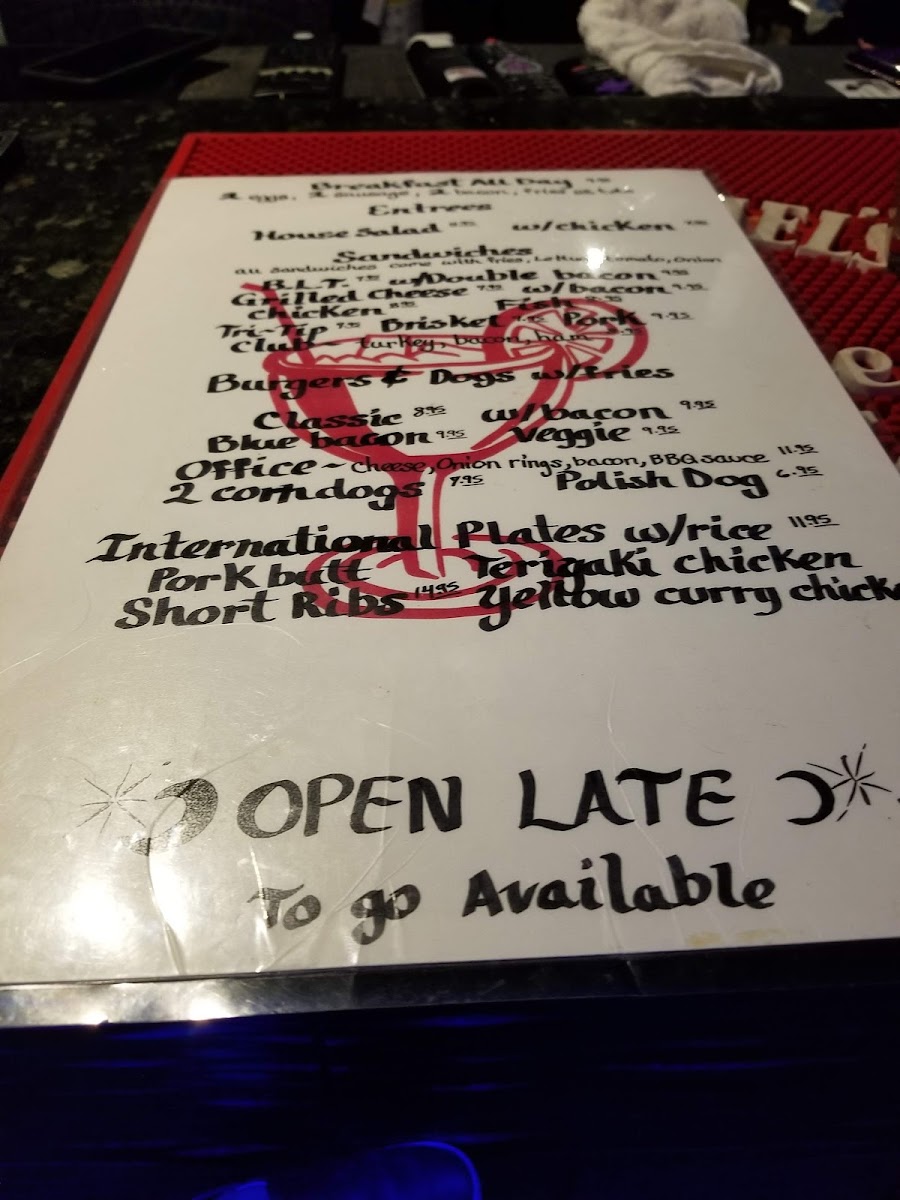 Breakfast All Day
2 eggs, 2 sausage, 2 bacon, fries
Entrees
House Salad w/chicken
Sandwiches
all Sandwiches come with fries, Lettuce, tomato, Onion
B.L.T. 7.95 w/Double bacon 9.95
Grilled Cheese 7.95 w/bacon 9.95
chicken 8.95 Fish
Tri-Tip 9.95 Brisket 9.95 Pork 9.95
Club~ turkey, bacon, ham
Burgers & Dogs w/fries
Classic 8.95 w/bacon 9.95
Blue bacon 9.95 Veggie 9.95
Office~ cheese, Onion rings, bacon, BBQ sauce 11.95
2 corndogs 7.95 Polish Dog 6.95
International Plates w/rice 11.95
Pork butt Terigaki chicken
Short Ribs 14.95 Yellow curry chick
OPEN LATE
To go Available